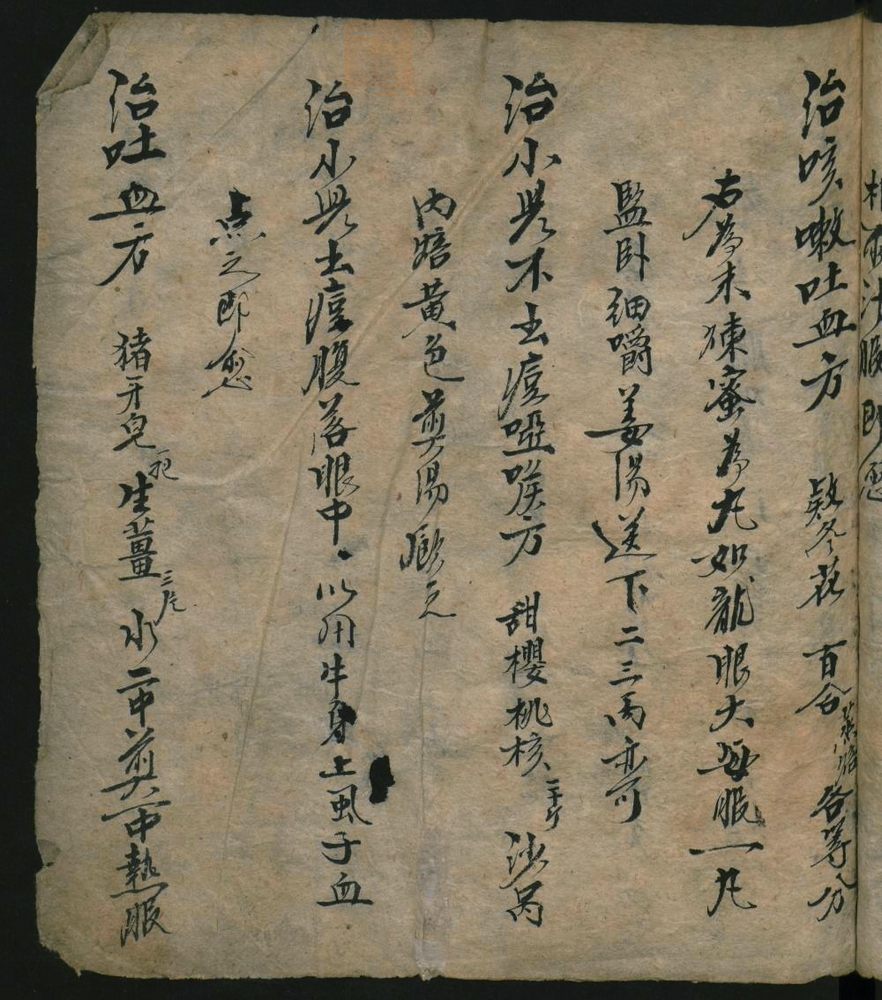 治咳嗽吐血方 款冬花 百合蒸焙各等分
右為末煉蜜為丸如龍眼大每服一丸
監卧细嚼姜湯送下二三丙亦可
治小児不出痘哑喉方 甜櫻桃核二十个 沙吊
内焙黄色煎湯飲之
治小児出痘腹落眼中以用牛身上虱子血
点之即愈
治吐血方 猪牙皂一皂 生薑三片 水二中煎一中熱服